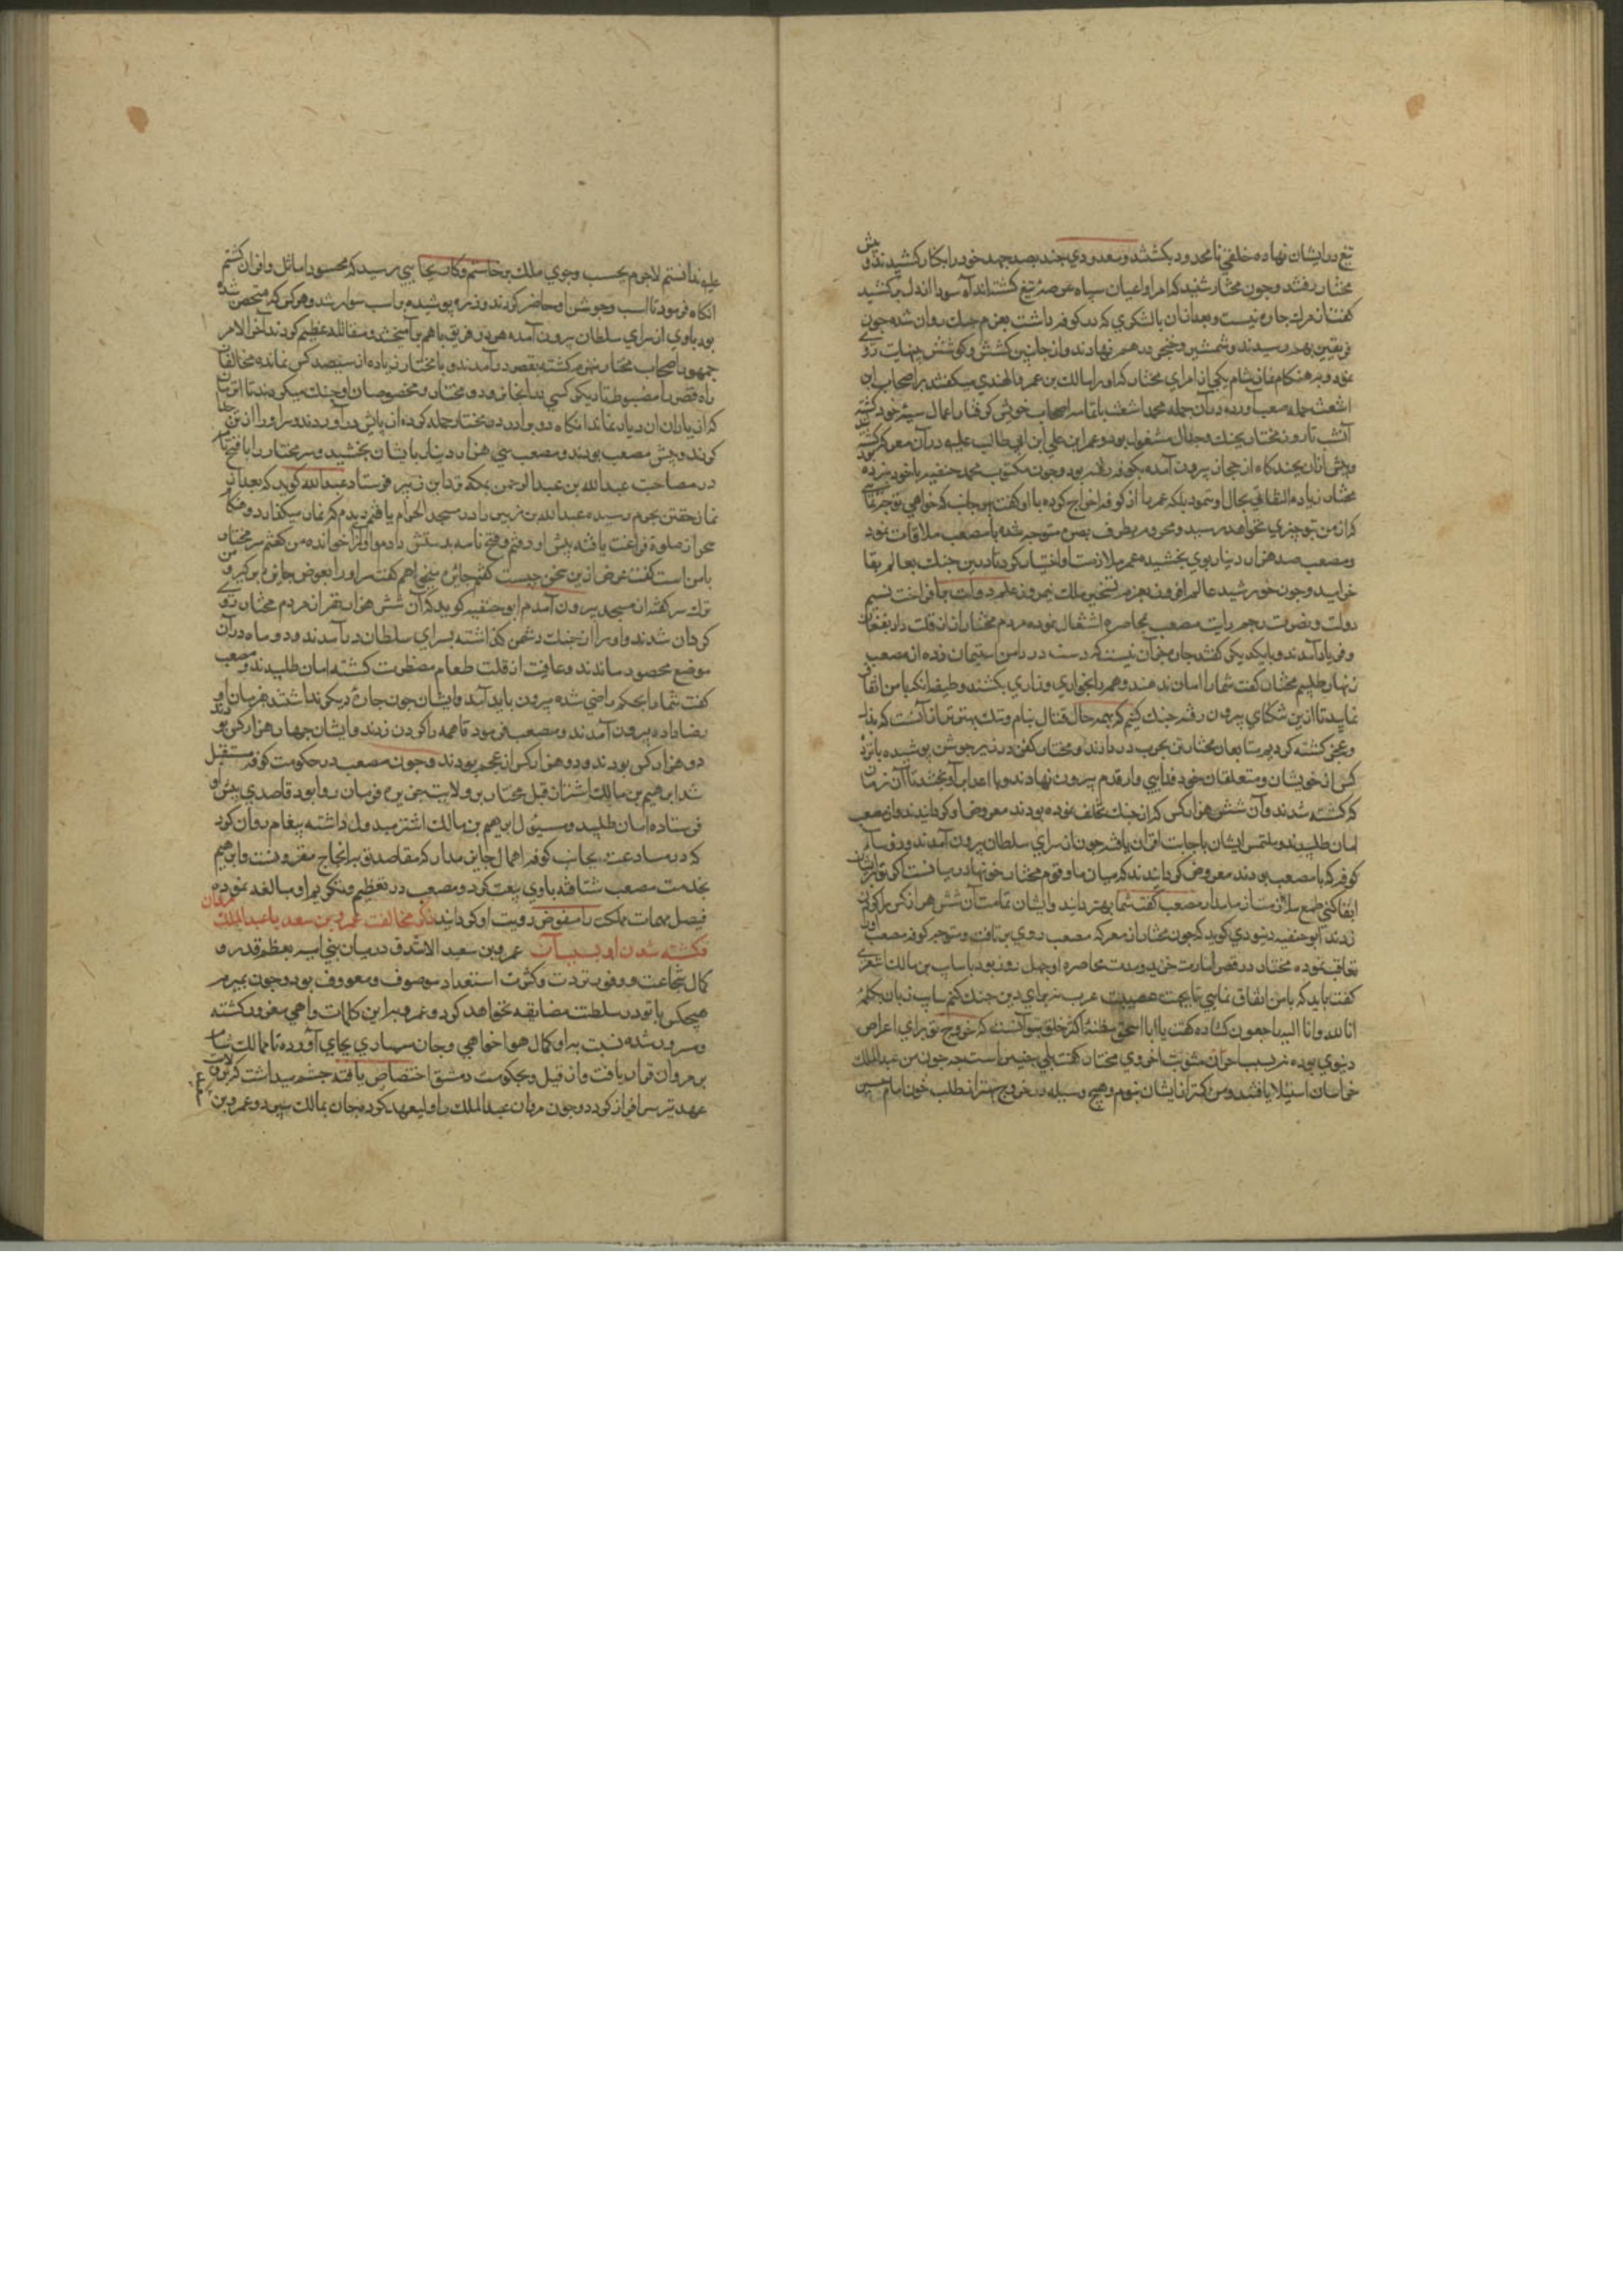 تیغ در ایشان نهاده خلقی نامحدود بکشتند و معدودی چند بصد جهد خود را بکنار کشیدند و پیش
مختار رفتند و چون مختار شنید که امرا و اعیان سپاه عرضهٔ تیغ کشته‌اند آه سرد از دل برکشید
کفت از مرك چاره نیست و بعد از آن با لشکری که در کوفه داشت بعزم جنك روان شد چون
فریقین بهم رسیدند و شمشیر و خنجر در هم نهادند و از جانبین کشش و کوشش بنهایت
نمود و در هنکام نماز شام یکی از امرای مختار که او را مالك بن عمر و النهدی میکفتند بر اصحاب ابن
اشعث حمله آورده در آن حمله محمد اشعث با تمام اصحاب خویش کرفتار اعمال سیئه خود کشته
آنشب تا روز مختار بجنك و جدال مشغول بود و عمر ابن علی ابن ابی طالب علیه در آن معرکه کشته شد
و پیش از آن بچند کاه از حجاز بیرون آمده بکوفه رفته بود و چون مکتوب محمد حنفیه با خود نبرده بود
مختار زیاده التفاتی بحال او ننمود بلکه عمر را از کوفه اخراج کرده با او کفت بهر جانب که خواهی توجه نمای
که از من بتو چیزی نخواهد رسید و عمر بطرف بصره متوجه شده با مصعب ملاقات نمود
و مصعب صد هزار دینار بوی بخشیده عمر ملازمت او اختیار کرد تا در این جنك بعالم بقا
خرامید و چون خورشید عالم افروز بعزم تسخیر ملك نیمروز علم دولت برافراخت نسیم
دولت و نصرت بر رایت مصعب بمحاصره اشتغال نموده مردم مختار از قلت زاد بفغان
و فریاد آمدند و با یکدیکر کفتند چاره جز آن نیست که دست در دامن استیمان زده از مصعب
زنهار طلبیم مختار کفت شما را امان ندهند و همه را بخواری و زاری بکشند وظیفه آنکه با من اتفاق
نمایید تا از این تنکنای بیرون رفته جنك کنیم که بهمه حال قتال بنام و ننك بهتر از آنست که بذل
و عجز کشته کردیم متابعان مختار تن بحرب در ندادند و مختار کفن در زیر جوشن پوشیده با نوزده
کس از خویشان و متعلقان خود فدایی وار قدم بیرون نهادند و با اعدا برآویختند تا آن زمان
که کشته شدند و آن شش هزار کس که از جنك تخلف نموده بودند معروض او کردانیدند و از مصعب
امان طلبیدند و ملتمس ایشان باجابت اقتران یافته چون از سرای سلطان بیرون آمدند و رؤسای
کوفه که با مصعب بودند معروض کردانیدند که میان ما و قوم مختار خونها در میانست اکر تو بر ایشان
ابقا کنی طمع ملازمت از ما مدار مصعب کفت شما بهتر دانید و ایشان تمامت آن شش هزار کس را کردن
زدند ابو حنیفه دینوری کوید که چون مختار از معرکه مصعب روی بر تافت و متوجه کوفه مصعب او را
تعاقب نموده مختار در قصر امارت خزید و مدت محاصره او چهل روز بود با سایب بن مالك اشعری
کفت باید که با من اتفاق نمایی تا بجهت عصبیت عرب نه برای دین جنك کنیم سایب زبان بکلمهٔ
انا لله و انا الیه راجعون کشاده کفت یا ابا اسحق مظنهٔ اکثر خلق تو آنست که خروج تو برای اعراض
دنیوی بوده نه بسبب احراز مثوبت اخروی مختار کفت بلی چنین است چه چون من عبدالملك
خراسان استیلا یافتند و من کمتر از ایشان نبودم و هیچ وسیله در خروج بهتر از طلب خون امام حسین
علیه ندانستم لاجرم بحسب وجوی ملك برخاستم و کار بجایی رسید که محسود اماثل و اقران کشتم
انکاه فرمود تا اسب و جوشن او حاضر کردند و زره پوشیده بر اسب سوار شد و هر کس که متحصن شده
بود با وی از سرای سلطان بیرون آمده هر دو فریق با هم برآمیختند و مقاتله عظیم کردند آخر الامر
جمهور اصحاب مختار منهزم کشته بقصر در آمدند و با مختار زیاده از سیصد کس نمانده مخالفان
راه قصر را مضبوط تا دیکر کسی بدانجا نرود و مختار و مخصوصان او جنك میکردند تا اثر
که از یاران او دیار نماند آنکاه رو بدو آورده مختار حمله کرده از پایش در آوردند و سر او را از تن جدا
کردند و پیش مصعب بودند و مصعب سی هزار دینار بایشان بخشید و سر مختار را با فتح نامه
در مصاحبت عبدالله بن عبدالرحمن بمکه نزد ابن زبیر فرستاد عبدالله کوید که بعد از
نماز خفتن بحرم رسیده عبدالله بن زبیر را در مسجد الحرام یافتم دیدم که نماز میکذارد و هنکام
سحر از صلوة فراغت یافته پیش او رفتم و فتح نامه بدستش دادم و او آنرا خوانده من کفتم سر مختار
با من است کفت غرض از این سخن چیست کفتم جایزه میخواهم کفت سر او را بعوض جایزه برکیر و من
ترك سر کفته از مسجد بیرون آمدم ابو حنیفه کوید که آن شش هزار نفر از مردم مختار
کردان شدند و او را از جنك دشمن کذاشته بسرای سلطان در آمدند و دو ماه در آن
موضع محصور ماندند و عاقبت از قلت طعام مضطرب کشته امان طلبیدند و مصعب
کفت شما را بحکم راضی شده بیرون باید آمد و ایشان چون چارهٔ دیکر نداشتند بفرمان او
رضا داده بیرون آمدند و مصعب فرمود تا همه را کردن زدند و ایشان چهار هزار کس بودند
دو هزار کس بودند و دو هزار کس از عجم بودند و چون مصعب در حکومت کوفه مستقل
شد ابرهیم بن مالك اشتر از قبل مختار بر ولایت جزیره فرمان روا بود قاصدی پیش او
فرستاده امان طلبید و مسئول ابرهیم بن مالك اشتر مبذول داشته پیغام روان کرد
که در مسارعت بجانب کوفه اهمال جایز مدار که مقاصد تو بر انجاح مقرونست و ابرهیم
بخدمت مصعب شتافته با وی بیعت کرد و مصعب در تعظیم و تکریم او مبالغه نموده
فیصل مهمات ملك را مفوض رویت او کردانید ذکر مخالفت عمرو بن سعید با عبدالملك مروان
و کشته شدن او بسبب آن عمرو بن سعید الاشدق در میان بنی امیه بعظم قدر و
کمال شجاعت و وفور ثروت و کثرت استعداد موصوف و معروف بود و چون
هیچکس با تو در سلطنت مضایقه نخواهد کرد و عمرو بر این کلمات واهی مغرور کشته
و مسرور شده نسبت بدو کمال هواخواهی و جان سپاری بجای آورده تا ممالك شام
بر مروان قرار یافت و از قبل و بحکومت دمشق اختصاص یافته چشم میداشت که بولایت
عهد نیز سرافراز کردد و چون مروان عبدالملك را ولیعهد کرده جان بمالك سپرد و عمرو بن